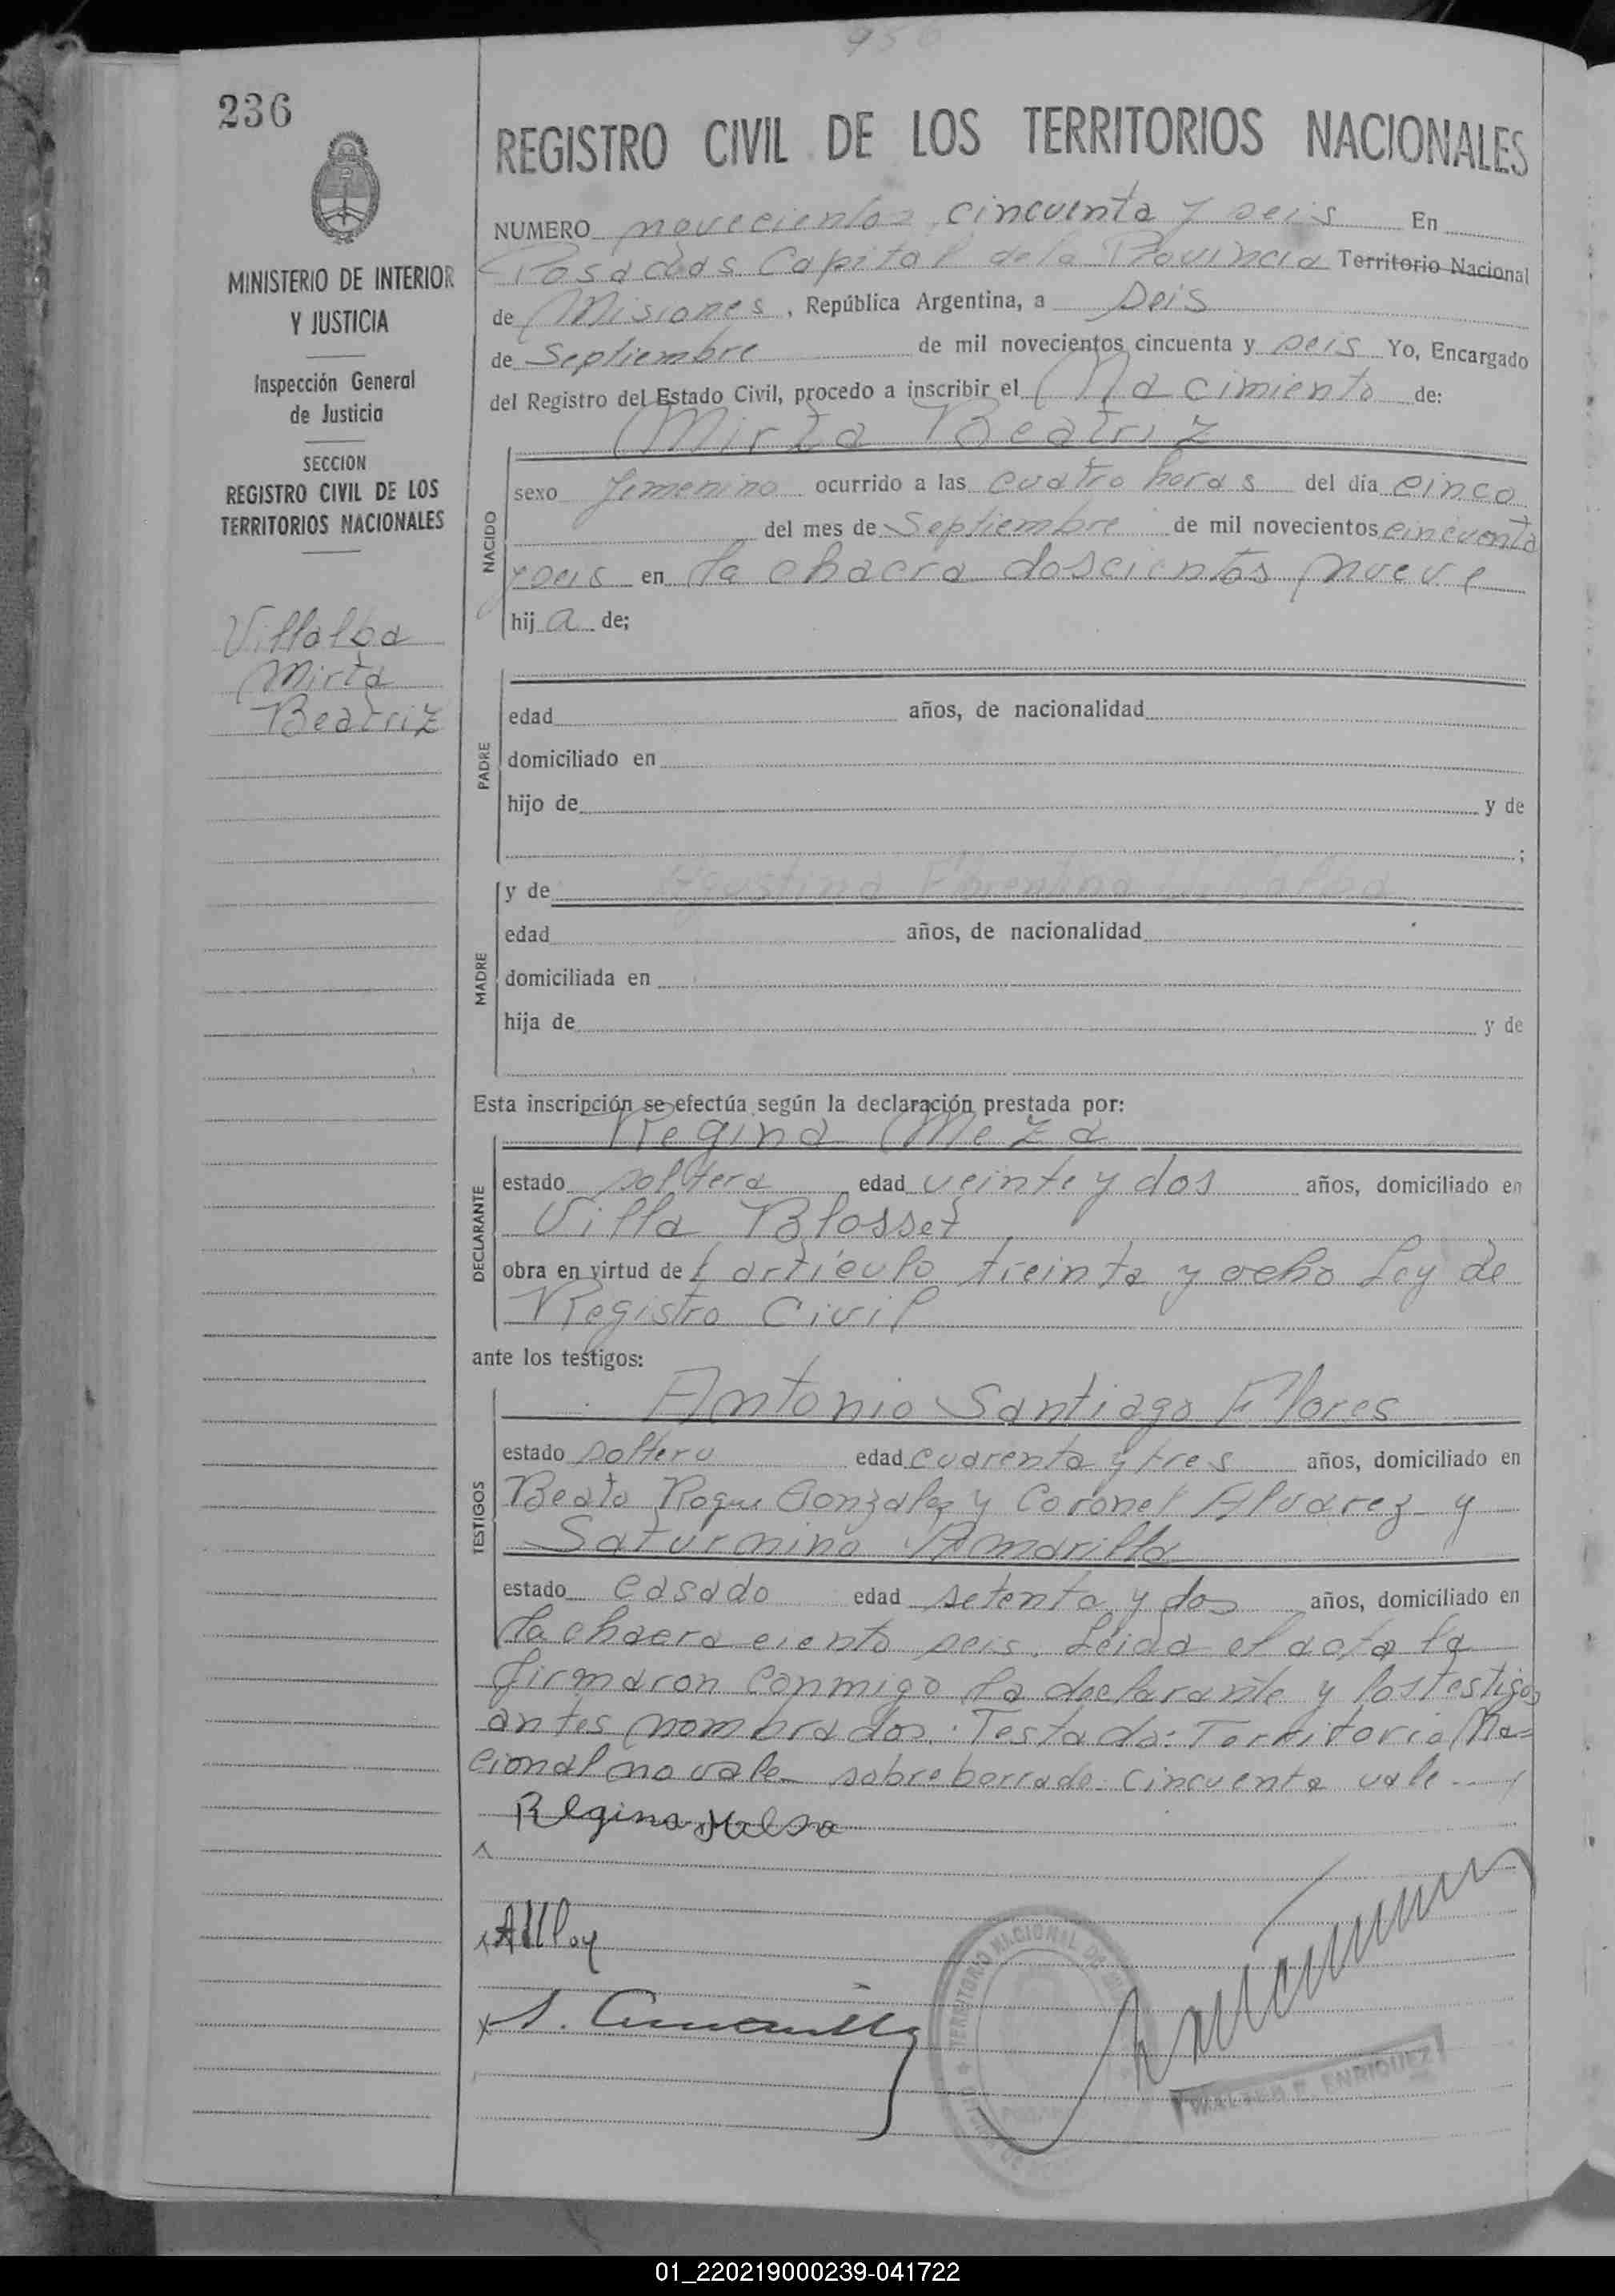 956
236
REGISTRO CIVIL DE LOS TERRITORIOS NACIONALES
NUMERO novecientos cincuenta y seis En
Posadas Capital de la Provincia Territorio Nacional
de Misiones, República Argentina, a seis
de Septiembre de mil novecientos cincuenta y seis Yo, Encargado
del Registro del Estado Civil, procedo a inscribir el Nacimiento de:
Mirta Beatriz
MINISTERIO DE INTERIOR
Y JUSTICIA
Inspección General
de Justicia
SECCION
REGISTRO CIVIL DE LOS
TERRITORIOS NACIONALES
Villalba
Mirta
Beatriz
NACIDO
sexo femenino ocurrido a las cuatro horas del día cinco
del mes de Septiembre de mil novecientos cincuenta
y seis en la chacra doscientos nueve
hija de;
PADRE
edad años, de nacionalidad
domiciliado en
hijo de y de
;
MADRE
y de Agustina Florentina Villalba
edad años, de nacionalidad
domiciliada en
hija de y de
Esta inscripción se efectúa según la declaración prestada por:
Regina Meza
DECLARANTE
estado soltera edad veinte y dos años, domiciliado en
Villa Blosset
obra en virtud del artículo treinta y ocho Ley de
Registro Civil
ante los testigos:
Antonio Santiago Flores
TESTIGOS
estado soltero edad cuarenta y tres años, domiciliado en
Beato Roque Gonzalez y Coronel Alvarez y
Saturnino Amarilla
estado casado edad setenta y dos años, domiciliado en
la chacra ciento seis. Leida el acta la
firmaron conmigo la declarante y los testigos
antes nombrados. Testado: Territorio Na=
cional no vale sobreborrado: cincuenta vale
Regina Mesa
S. Amarilla
TERRITORIO NACIONAL DE
WALTER E. ENRIQUEZ
01_220219000239-041722